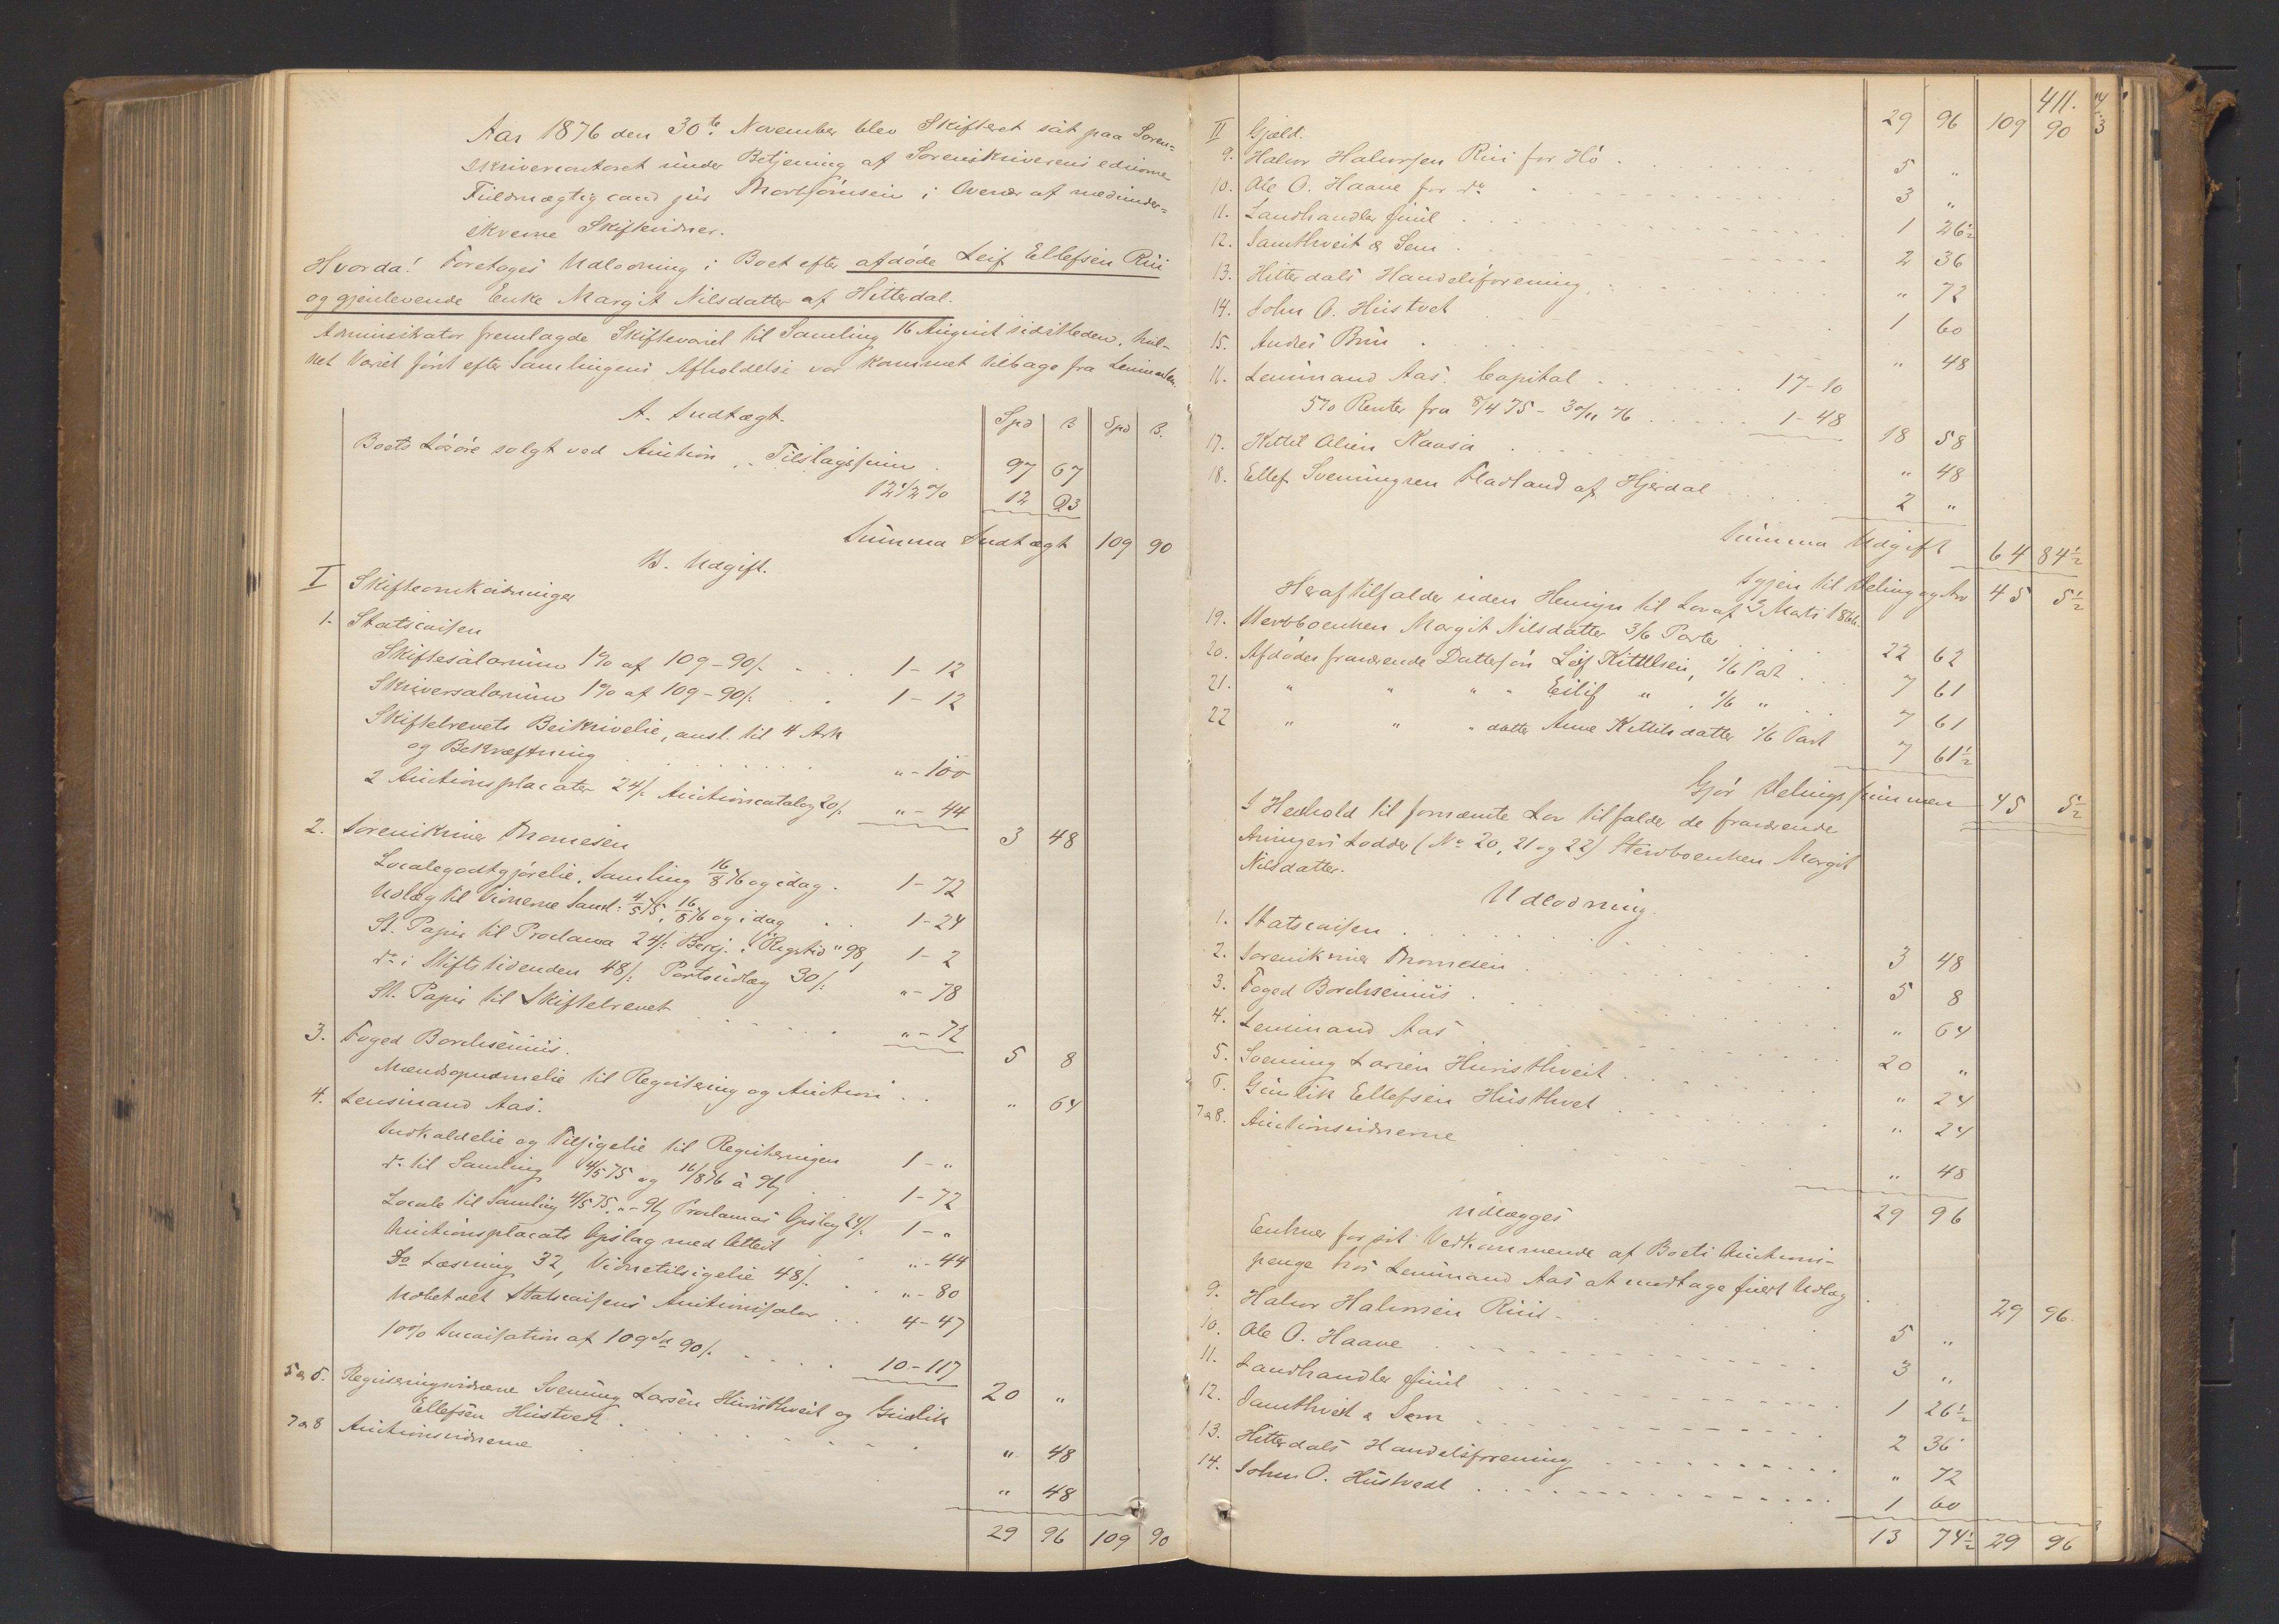 Aar 1876 den 30te November blev Skifteret sat paa Soren=
skrivercontoret under Betjening af Sorenskriverens edsvorne
Fuldmægtig cand jur Thorbjörnsen i Overvær af medunder=
skrevne Skiftevidner.
Hvorda! Foretoges Udlodning i Boet efter afdöde Leif Ellefsen Rui
og gjenlevende Enke Margit Nilsdatter af Hitterdal.
Administrator fremlagde Skiftevarsel til Samling 16 August sidstleden, hvil-
ket Varsel först efter Samlingens Afholdelse var kommet tilbage fra Lensmanden.
A. Indtægt. Spd ß Spd ß.
Boets Lösöre solgt ved Auktion, Tilslagssum 97 67
12 1/2 % 12 23
Summa Indtægt 109 90
B. Udgift.
I Skifteomkostninger
1. Statscassen
Skiftesalarium 1% af 109-90ß. 1-12
Skriversalarium 1% af 109-90ß. 1-12
Skiftebrevets Beskrivelse, ansl. til 4 Ark
og Bekræftning „-100
2 Auctionsplacater 24ß. Auctionscatalog 20ß. „-44
3 48
2. Sorenskriver Thomesen
Localegodtgjörelse, Samling 16/8 76 og idag. 1-72
Udlæg til Vidnerne Saml: 4/5 75, 16/8 76 og i dag 1-24
St. Papir til Proclama 24ß. Berej. i Rigstid „98, 1-2
do i Stiftstidenden 48ß. Portoudlæg 30ß. „-78
St. Papir til Skiftebrevet „-72
5 8
3. Foged Borchsenius.
Mændsopnævnelse til Registering og Auction „ 64
4. Lensmand Aas.
Indkaldelse og Tilsigelse til Registeringen 1-„
do til Samling 4/5 75 og 16/8 76 á 96ß 1-72
Locale til Samling 4/5 75. „-96ß Proclamas Opslag 24ß. 1-„
Auctionsplacats Opslag med Attest „-44
Do Læsning 32, Vidnetilsigelse 48ß. „-80
Udbetalt Statscassens Auctionssalær 4-47
10% Incassation af 109 Spd 90ß. 10-117
20 „
5 & 6. Registeringsvidnerne Svenung Larsen Huusthveit og Gunlik
Ellefsen Hustvedt „ 48
7 & 8 Auctionsvidnerne „ 48
29 96 109 90
411.
29 96 109 90
II Gjæld.
9. Halvor Halvorsen Rui for Hö 5 „
10. Ole O. Haave for do 3 „
11. Landhandler Juul 1 26 1/2
12. Samthveit & Sem 2 36
13. Hitterdals Handelsforening „ 72
14. John O. Hustvet 1 60
15. Anders Brun „ 48
16. Lensmand Aas. Capital 17-10
5% Renter fra 8/4 75 - 30/11 76 1-48
18 58
17. Kittil Olsen Kaasa „ 48
18. Ellef Svenningsen Fladland af Hjerdal 2 „
Summa Udgift 64 84 1/2
Igjen til Deling og Arv 45 5 1/2
Heraf tilfalder uden Hensyn til Lov af 3 Marts 1866.
19. Stervboenken Margit Nilsdatter 3/6 Parter 22 62
20. Afdödes fraværende Dattersön Leif Kittilsen, 1/6 Part 7 61
21. „ „ „ „ Eilif „ 1/6 „ 7 61
22 „ „ „ datter Anne Kittilsdatter 1/6 Part 7 61 1/2
Gjör Delingssummen 45 5 1/2
I Henhold til fornævnte Lov tilfalder de fraværende
Arvingers Lodder (No 20, 21 og 22) Stervboenken Margit
Nilsdatter.
Udlodning.
1. Statscassen 3 48
2. Sorenskriver Thomesen 5 8
3. Foged Borchsenius „ 64
4. Lensmand Aas 20 „
5. Svenung Larsen Huusthveit „ 24
6. Gunlik Ellefsen Husthvet „ 24
7 & 8. Auctionsvidnerne „ 48
29 96
udlægges
Enhver for sit Vedkommende af Boets Auctions-
penge hos Lensmand Aas at modtage sit Udlæg 29 96.
9. Halvor Halvorsen Rui 5 „
10. Ole O. Haave 3 „
11. Landhandler Juul 1 26 1/2
12. Samthveit & Sem 2 36
13. Hitterdals Handelsforening „ 72
14. John O. Hustvedt 1 60
13 74 1/2 29 96